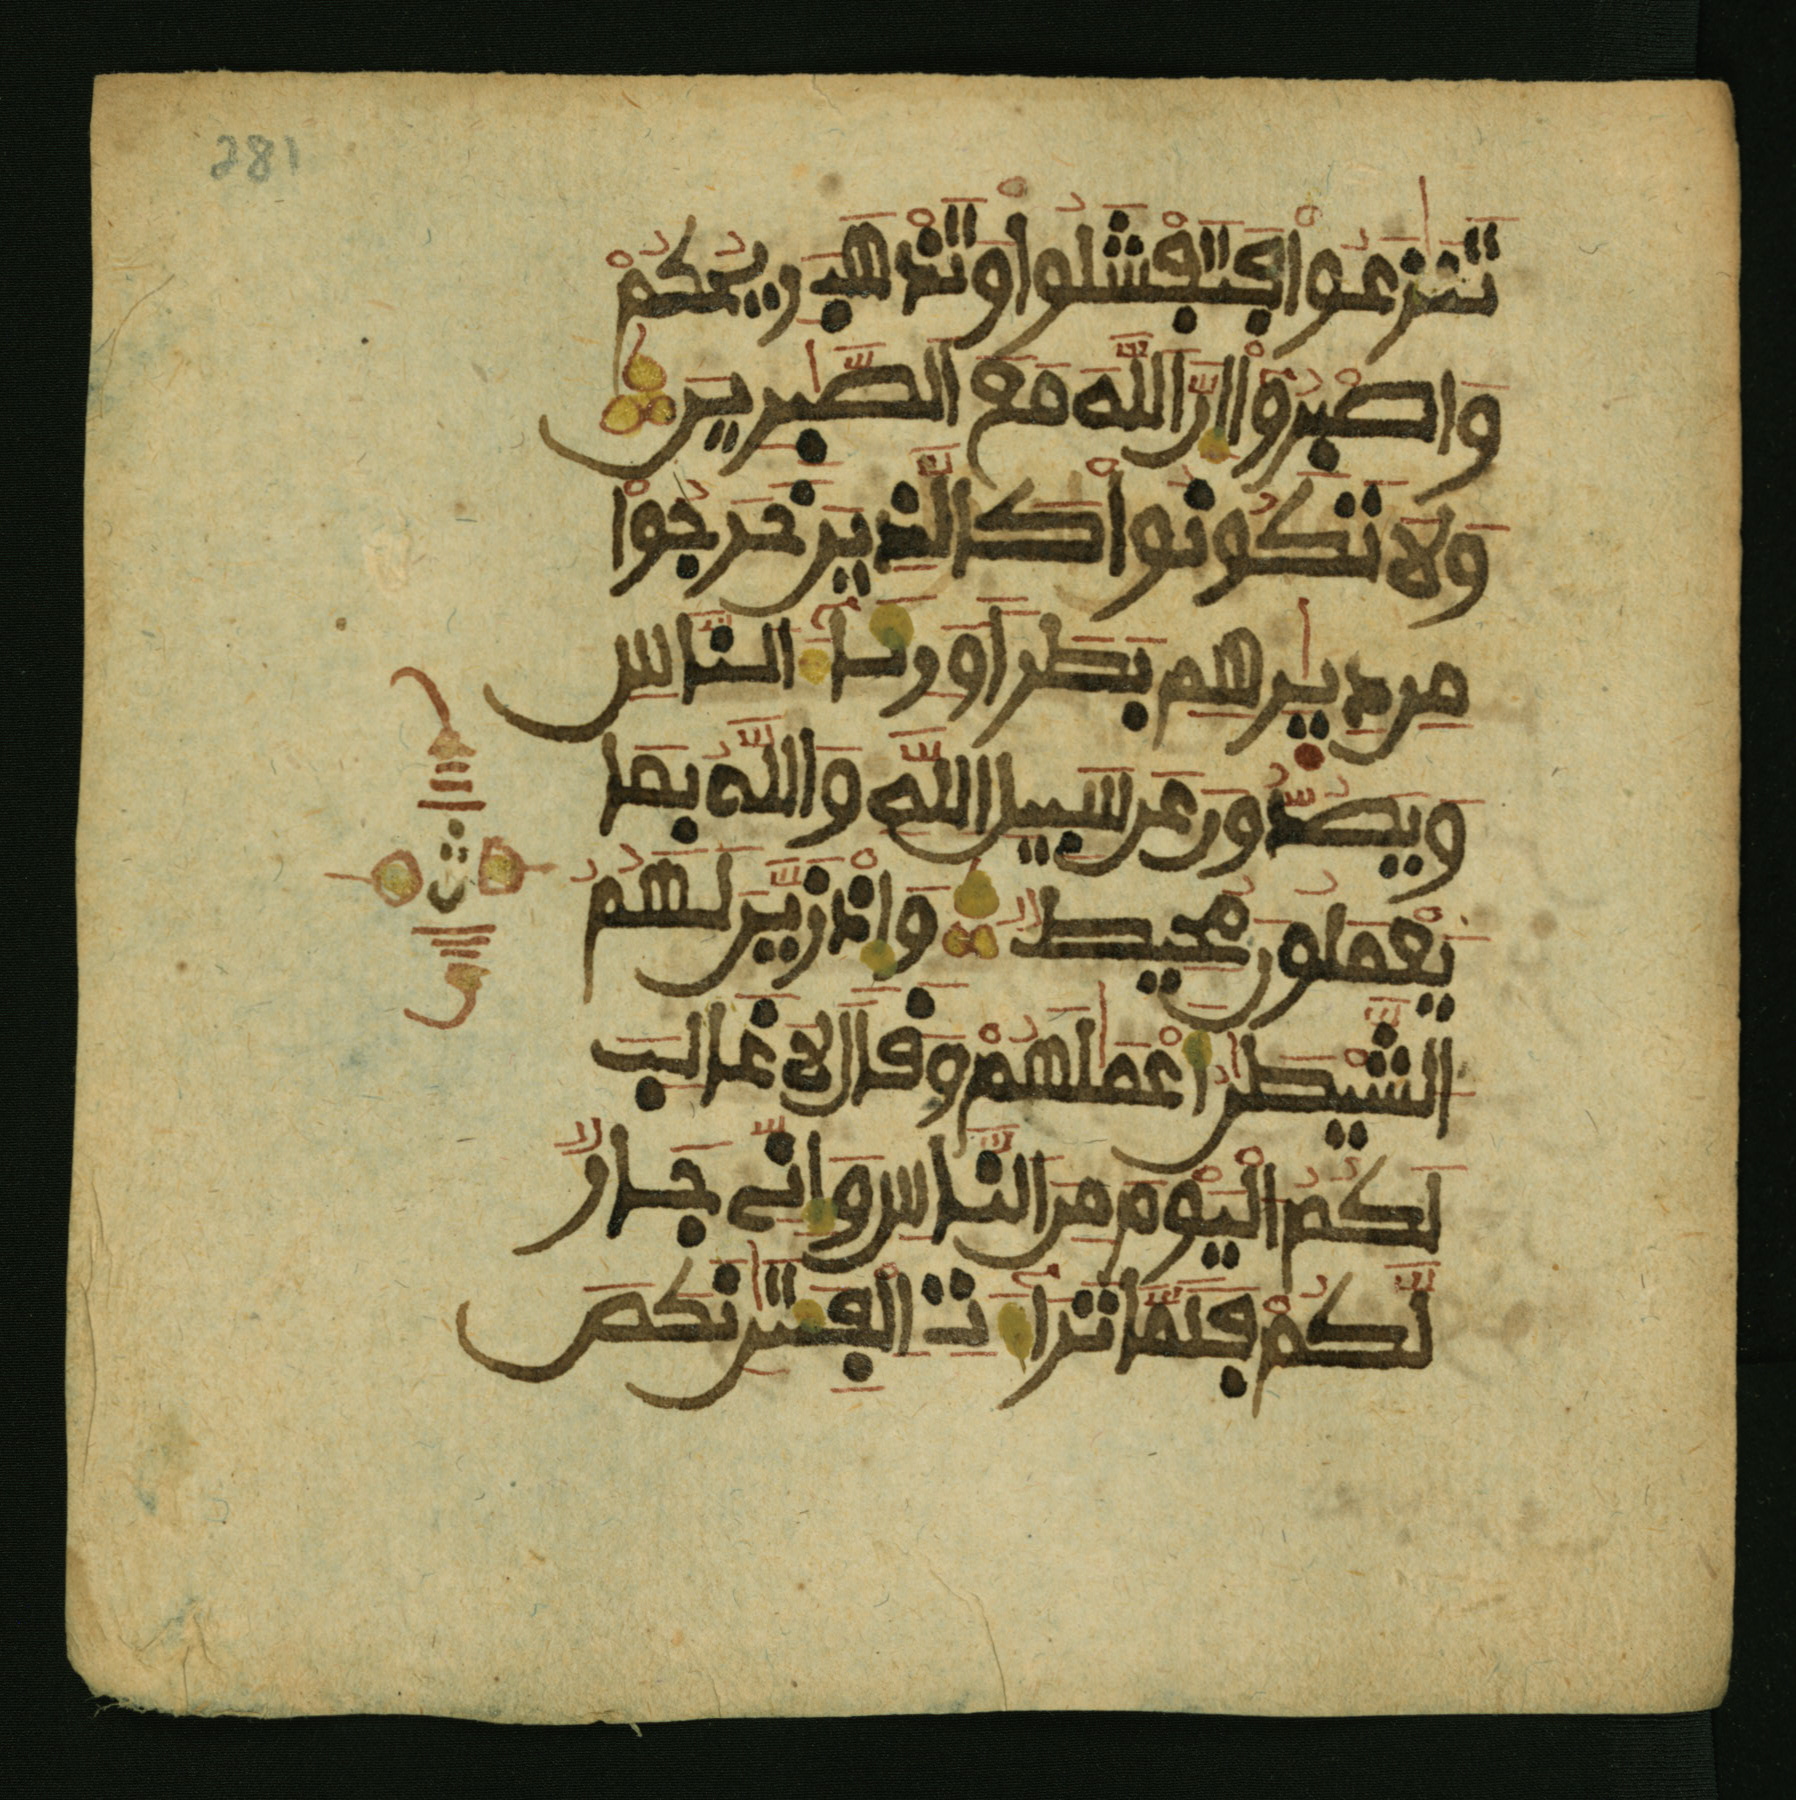 281
تَنَٰزَعُوا فَتَفْشَلُوا وَتَذْهَبَ رِيحُكُمْ
وَاصْبِرُوا إِنَّ اللَّهَ مَعَ الصَّٰبِرِينَ
وَلَا تَكُونُوا كَالَّذِينَ خَرَجُوا
مِن دِيَٰرِهِم بَطَرًا وَرِئَاءَ النَّاسِ
وَيَصُدُّونَ عَن سَبِيلِ اللَّهِ وَاللَّهُ بِمَا
يَعْمَلُونَ مُحِيطٌ وَإِذْ زَيَّنَ لَهُمُ
ثمن
الشَّيْطَٰنُ أَعْمَٰلَهُمْ وَقَالَ لَا غَالِبَ
لَكُمُ الْيَوْمَ مِنَ النَّاسِ وَإِنِّي جَارٌ
لَّكُمْ فَلَمَّا تَرَاءَتِ الْفِئَتَٰنِ نَكَصَ